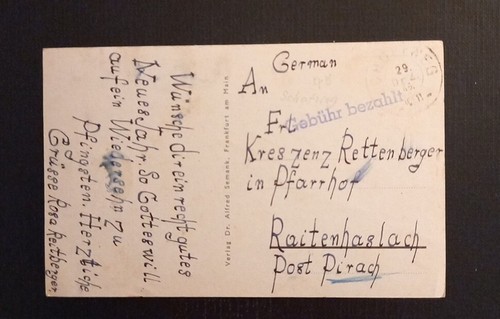 Wünsche dir ein recht gutes
Neues Jahr. So Gottes will
auf ein Wiedersehn zu
Pfingsten. Herzliche
Grüsse Rosa Rettberger.
Verlag Dr. Alfred Semank, Frankfurt am Main
German
An
Frl.
Kreszenz Rettenberger
in Pfarrhof
Raitenhaslach
Post Pirach
Gebühr bezahlt
29.